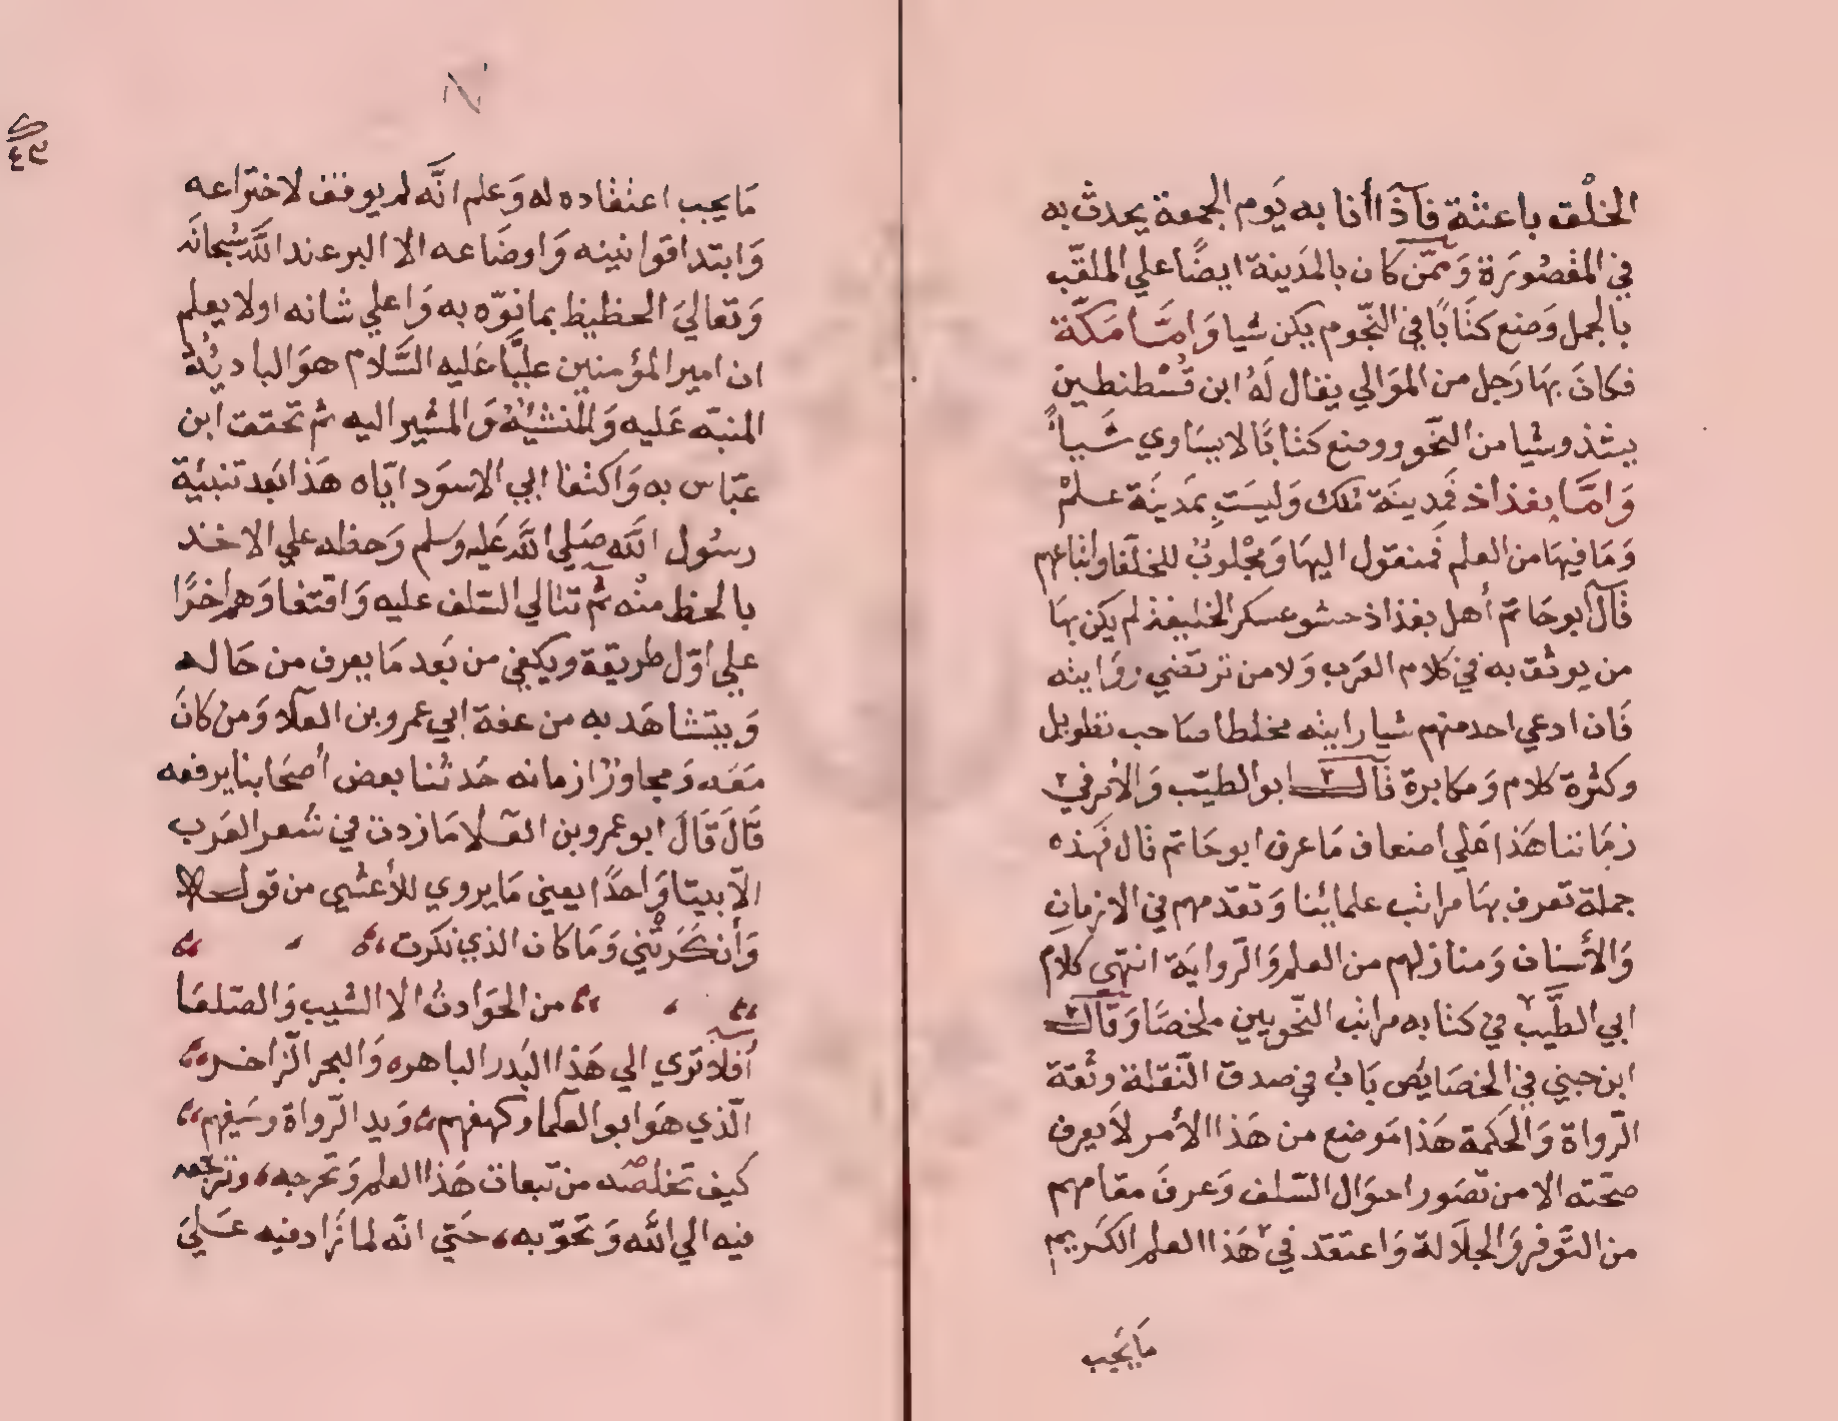 الخلْق باعثة فآذا أنا به يَوم الجمعة يحدث به
في المقصُورَة وَممّن كان بالمدَينة ايضًا علي الملقّب
بالجمل وَضع كتَابًا في النّجوم يكن شيا وَامَّا مَكَّة
فكانَ بهَا رَجل من الموَالي يقال لَهُ ابن قُسْطنطين
يشذ وشيا من النّحو ووضع كتابًا لا يسَاوي شَياً
وَامَّا بغذاذ فمَدينَة مُلك وَليسَتِ بمَدينَة علمْ
وَمَا فيهَا من العلم فمنقول اليهَا وَمجْلوبٌ للخلَفا واتباعهم
قَالَ ابو حَاتم أهل بغذاذ حشو عسكر الخليفة لم يكن بهَا
من يوثق به في كلام العَرب وَلا من ترتضي روَايته
فَان ادعي احد منهم شيا رايته مخلطا صَاحب تطويل
وكثرة كلام وَمكابرة قَالَ ابو الطيّب وَالأمر في
زمَاننا هَذا عَلي اضعاف مَا عرف ابو حَاتم قال فَهذه
جملة تعرف بهَا مراتب علمائنا وَتقدّمهم في الازمانِ
وَالأسنان وَمنازلهم من العلم وَالرّوايَة انتهي كلام
ابي الطيَّب في كتابه مراتب النّحويين ملخصًا وَقَالَ
ابن جني في الخصَايص بَابُ في صدق النّقلة وثقة
الرّواة وَالحَكمة هَذا مَوضع من هَذا الأمر لاَ يعرف
صحّته الا من تصَور احوَال السّلف وَعرفَ مقامهم
من التّوَفر وَالجلاَلة وَاعتقد في هَذا العلم الكَريم
مَا يَجب
مَا يجب اعتقاده له وَعلم انَّه لم يوفق لاختراعه
وَابتدا قوانينه وَاوضَاعه الا البر عند اللَّه سُبحَانَه
وَتعَاليَ الحظيظ بما نوّه به وَاعلي شانه اولا يعلم
ان امير المؤمنين عليًّا عَليه السَّلام هوَ البادئُه
المنبّه عَليه وَالمنشئه وَالمشير اليه ثم تحقق ابن
عبّاس به وَاكتفا ابي الاسوَد ايّاه هَذا بَعد تنبئية
رسُول اللّه صَلي اللَّه عَليه وسَلم وَحظه علي الاخذ
بالحظ منْه ثُم تتالي السّلف عليه وَاقتفاوَهم اخرًا
علي اوّل طريقة ويكفي من بَعد مَا يعرف من حَاله
وَيتشاهَد به من عفة ابي عمرو بن العَلا وَمن كانَ
مَعَه وَمجاوزًا زمانه حَدثنا بعض أصحَابنا يرفعه
قَالَ قَالَ ابو عمرو بن العَلا مَا زدت في شعر العَرب
الاّ بيتًا وَاحدًا يعني مَا يروي للأعشي من قوله
وَأنكَرَتْني وَمَا كان الذي نكرت
من الحَوَادثُ الا الشيب وَالصّلعَا
أفلاَ تري الي هَذا البَدر الباهره وَالبحر الزّاخر
الّذي هوَ ابو العلما وكهفهم وَيد الرّواة وسَيفهم
كيف تخلصه من تبعات هَذا العلم وَتحرجه وتَرجّعه
فيه الي اللّه وَتحوّبه حَتي انّه لما زَاد فيه عَليَ